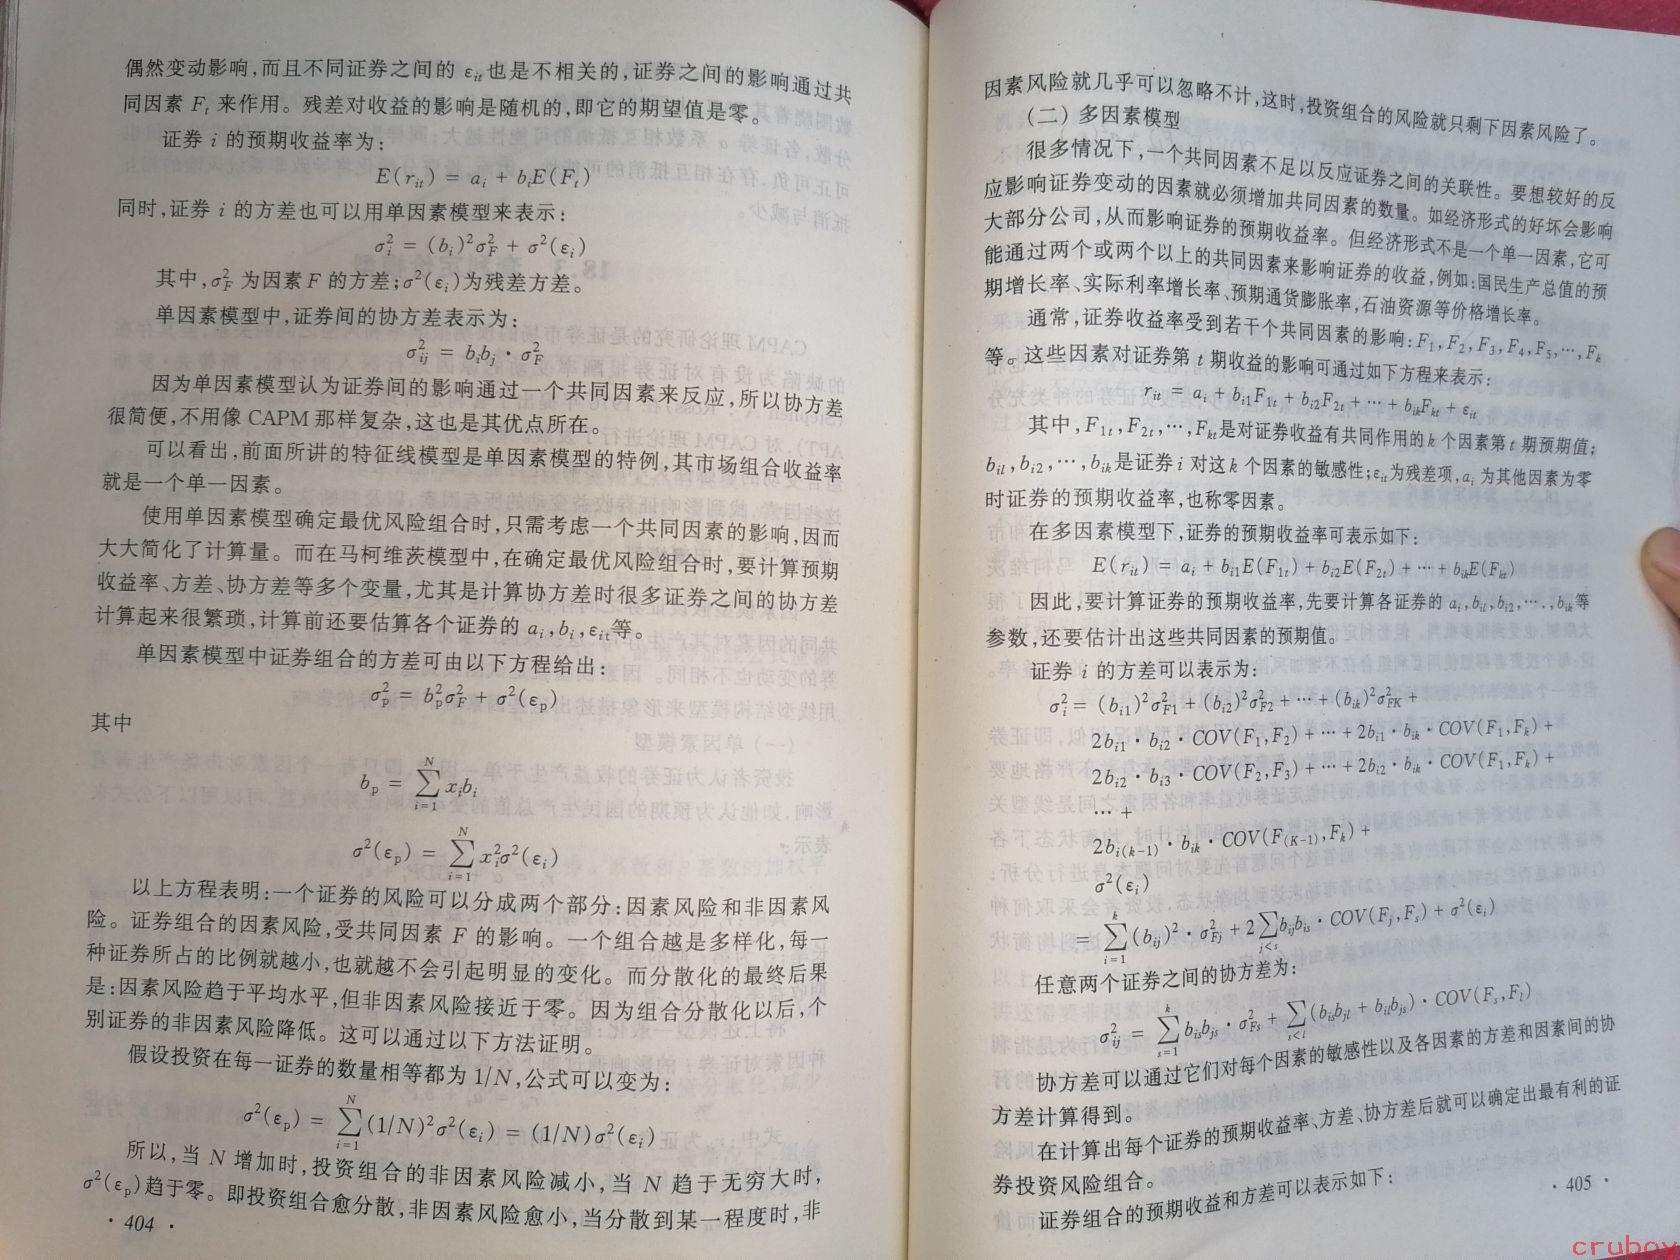 偶然变动影响,而且不同证券之间的 εit也是不相关的,证券之间的影响通过共
同因素 Ft 来作用。残差对收益的影响是随机的,即它的期望值是零。
证券 i 的预期收益率为:
E(rit) = ai + biE(Ft)
同时,证券 i 的方差也可以用单因素模型来表示:
σi² = (bi)²σF² + σ²(εi)
其中,σF² 为因素 F 的方差;σ²(εi)为残差方差。
单因素模型中,证券间的协方差表示为:
σij² = bibj · σF²
因为单因素模型认为证券间的影响通过一个共同因素来反应,所以协方差
很简便,不用像 CAPM 那样复杂,这也是其优点所在。
可以看出,前面所讲的特征线模型是单因素模型的特例,其市场组合收益率
就是一个单一因素。
使用单因素模型确定最优风险组合时,只需考虑一个共同因素的影响,因而
大大简化了计算量。而在马柯维茨模型中,在确定最优风险组合时,要计算预期
收益率、方差、协方差等多个变量,尤其是计算协方差时很多证券之间的协方差
计算起来很繁琐,计算前还要估算各个证券的 ai,bi,εit等。
单因素模型中证券组合的方差可由以下方程给出:
σp² = bp²σF² + σ²(εp)
其中
bp = ∑(i=1→N) xibi
σ²(εp) = ∑(i=1→N) xi²σ²(εi)
以上方程表明:一个证券的风险可以分成两个部分:因素风险和非因素风
险。证券组合的因素风险,受共同因素 F 的影响。一个组合越是多样化,每一
种证券所占的比例就越小,也就越不会引起明显的变化。而分散化的最终后果
是:因素风险趋于平均水平,但非因素风险接近于零。因为组合分散化以后,个
别证券的非因素风险降低。这可以通过以下方法证明。
假设投资在每一证券的数量相等都为 1/N,公式可以变为:
σ²(εp) = ∑(i=1→N) (1/N)²σ²(εi) = (1/N)σ²(εi)
所以,当 N 增加时,投资组合的非因素风险减小,当 N 趋于无穷大时,
σ²(εp)趋于零。即投资组合愈分散,非因素风险愈小,当分散到某一程度时,非
· 404 ·
因素风险就几乎可以忽略不计,这时,投资组合的风险就只剩下因素风险了。
(二) 多因素模型
很多情况下,一个共同因素不足以反应证券之间的关联性。要想较好的反
应影响证券变动的因素就必须增加共同因素的数量。如经济形式的好坏会影响
大部分公司,从而影响证券的预期收益率。但经济形式不是一个单一因素,它可
能通过两个或两个以上的共同因素来影响证券的收益,例如:国民生产总值的预
期增长率、实际利率增长率、预期通货膨胀率,石油资源等价格增长率。
通常,证券收益率受到若干个共同因素的影响:F1,F2,F3,F4,F5,…,Fk
等。这些因素对证券第 t 期收益的影响可通过如下方程来表示:
rit = ai + bi1F1t + bi2F2t + … + bikFkt + εit
其中,F1t,F2t,…,Fkt是对证券收益有共同作用的 k 个因素第 t 期预期值;
bi1,bi2,…,bik是证券 i 对这 k 个因素的敏感性;εit为残差项,ai 为其他因素为零
时证券的预期收益率,也称零因素。
在多因素模型下,证券的预期收益率可表示如下:
E(rit) = ai + bi1E(F1t) + bi2E(F2t) + … + bikE(Fkt)
因此,要计算证券的预期收益率,先要计算各证券的 ai,bi1,bi2,…,bik等
参数,还要估计出这些共同因素的预期值。
证券 i 的方差可以表示为:
σi² = (bi1)²σF1² + (bi2)²σF2² + … + (bik)²σFK² +
2bi1 · bi2 · COV(F1,F2) + … + 2bi1 · bik · COV(F1,Fk) +
2bi2 · bi3 · COV(F2,F3) + … + 2bi2 · bik · COV(F1,Fk) +
… +
2bi(k-1) · bik · COV(F(K-1),Fk) +
σ²(εi)
= ∑(i=1→k) (bij)² · σFj² + 2∑(j<s) bijbis · COV(Fj,Fs) + σ²(εi)
任意两个证券之间的协方差为:
σij² = ∑(s=1→k) bisbjs · σFs² + ∑(s<i) (bisbjl + bilbjs) · COV(Fs,Fl)
协方差可以通过它们对每个因素的敏感性以及各因素的方差和因素间的协
方差计算得到。
在计算出每个证券的预期收益率、方差、协方差后就可以确定出最有利的证
券投资风险组合。
证券组合的预期收益和方差可以表示如下:
· 405 ·
cruboy